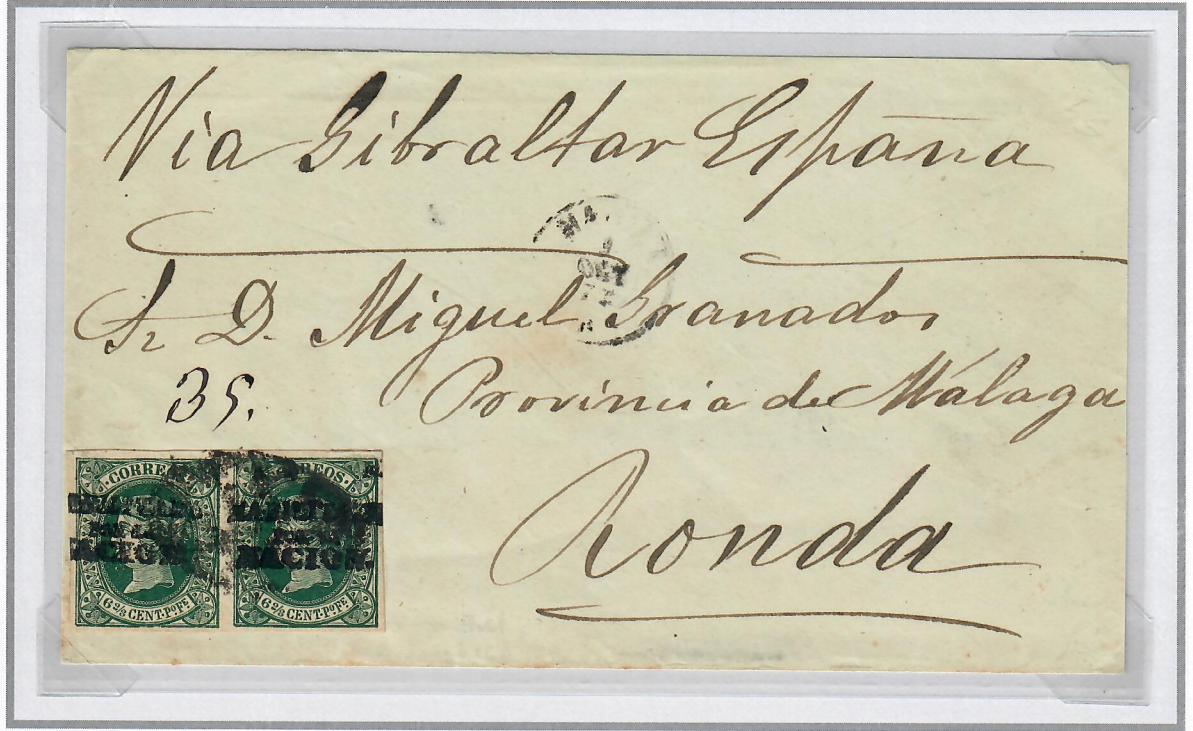 Via Gibraltar España
Sr D. Miguel Granados
35.
Provincia de Málaga
Ronda
CORREOS
HABILITADO
POR LA
NACION.
6 2/8 CENT. Po. Fe.
CORREOS
HABILITADO
POR LA
NACION.
6 2/8 CENT. Po. Fe.